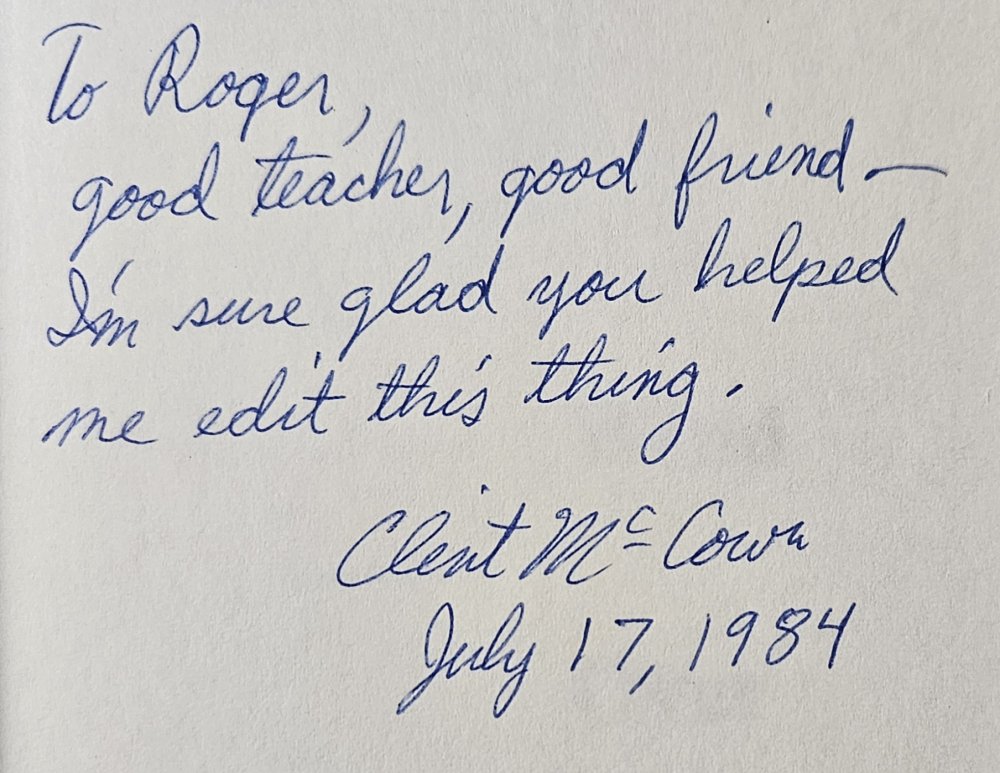 To Roger,
good teacher, good friend —
I'm sure glad you helped
me edit this thing.
Clint McCown
July 17, 1984